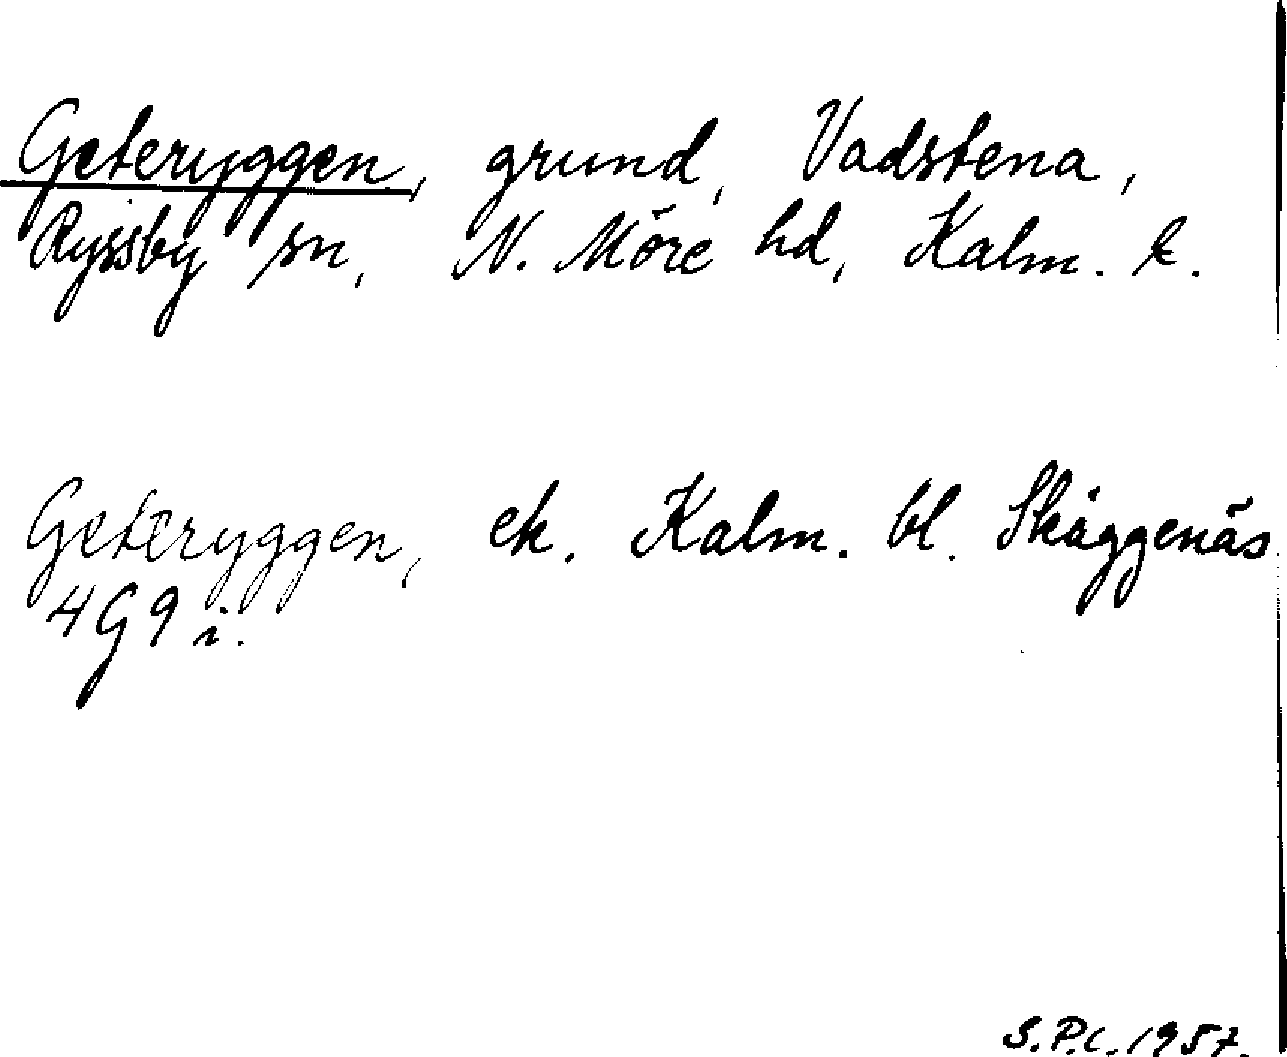 Geteryggen, grund, Vadstena,
Ryssby sn, N. Möre hd, Kalm. l.
Geteryggen, ek. Kalm. bl. Skäggenäs
4G9i.
S.P.C. 1957.